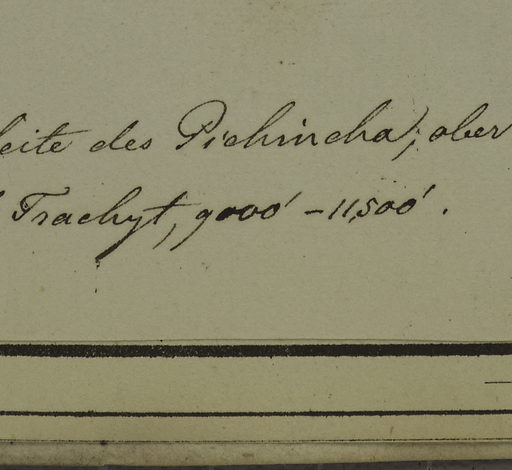 eite des Pichincha, ober
Trachyt, 9000' – 11,500'.